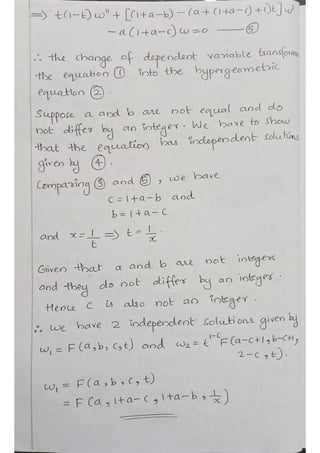 ⇒ t(1-t) w'' + [(1+a-b) - (a+(1+a-c)+1)t] w'
- a(1+a-c) w = 0 ——— ⑤
∴ the change of dependent variable transforms
the equation ① into the hypergeometric
equation ②.
Suppose a and b are not equal and do
not differ by an integer. We have to show
that the equation has independent solutions
given by ④.
Comparing ③ and ⑤, we have
c = 1+a-b and
b = 1+a-c
and x = 1/t ⇒ t = 1/x.
Given that a and b are not integers
and they do not differ by an integer.
Hence c is also not an integer.
∴ we have 2 independent solutions given by
w₁ = F(a,b,c,t) and w₂ = t^(1-c) F(a-c+1, b-c+1,
2-c, t).
w₁ = F(a,b,c,t)
= F(a, 1+a-c, 1+a-b, 1/x)